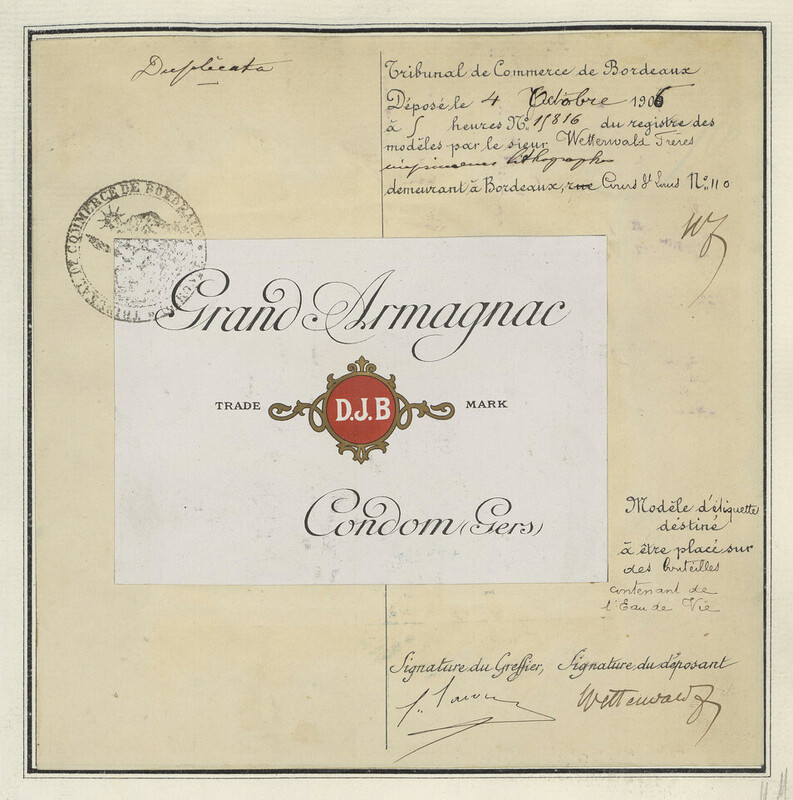 Duplicata
Tribunal de Commerce de Bordeaux
Déposé le 4 Octobre 1906
à 5 heures N° 15816 du registre des
modèles par le sieur Wetterwald Frères
imprimeurs lithographes
demeurant à Bordeaux, rue Cours St Louis N° 110
TRIBUNAL DE COMMERCE DE BORDEAUX
Grand Armagnac
TRADE D.J.B MARK
Condom (Gers)
Modèle d'étiquette
destiné
à être placé sur
des bouteilles
contenant de
l'Eau de Vie
Signature du Greffier, Signature du déposant
Wetterwald